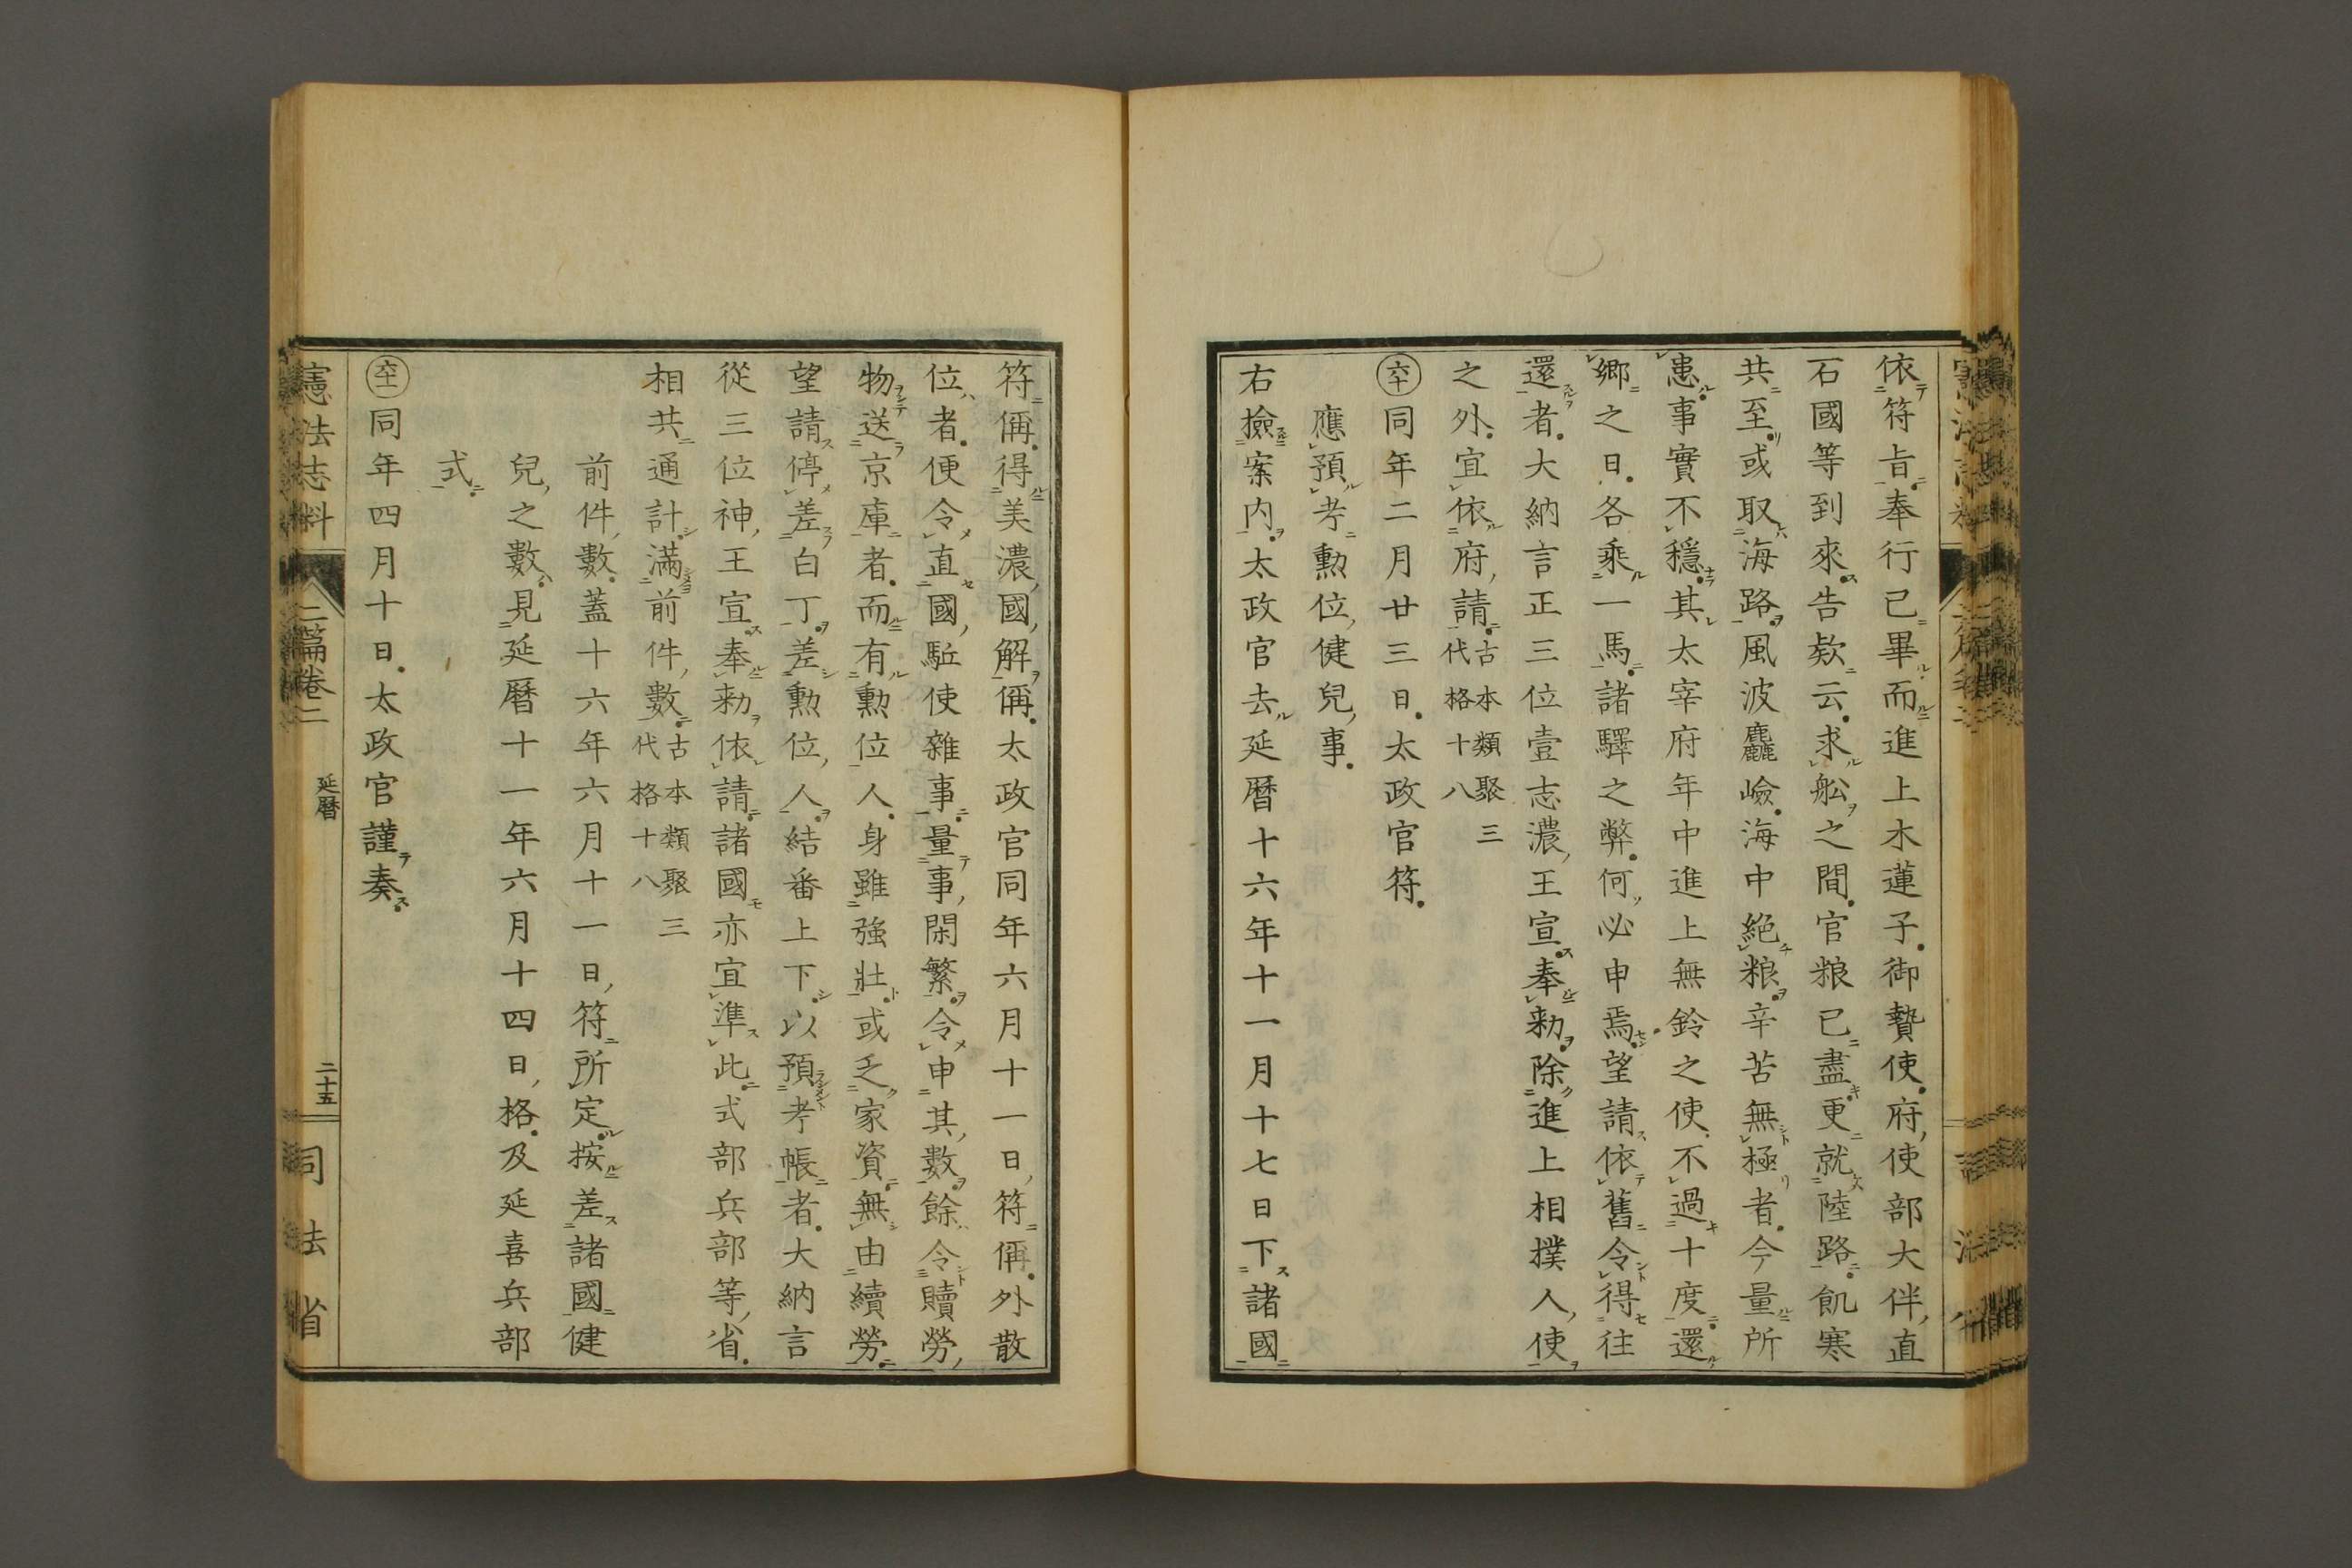 依符旨奉行已畢而進上木蓮子御贄使府使部大伴直
石國等到來告欵云求舩之間官粮已盡更就陸路飢寒
共至或取海路風波麤嶮海中絶粮辛苦無極者今量所
患事實不穩其太宰府年中進上無鈴之使不過十度還
郷之日各乘一馬諸驛之弊何必申焉望請依舊令得往
還者大納言正三位壹志濃王宣奉勅除進上相撲人使
之外宜依府請 古本類聚三代格十八
同年二月廿三日太政官符
應預考勲位健兒事
右撿案内太政官去延曆十六年十一月十七日下諸國
符偁得美濃國解偁太政官同年六月十一日符偁外散
位者便令直國駈使雜事量事閑繁令申其數餘令贖勞
物送京庫者而有勲位人身雖強壯或乏家資無由續勞
望請停差白丁差勲位人結番上下以預考帳者大納言
從三位神王宣奉勅依請諸國亦宜準此式部兵部等省
相共通計滿前件數 古本類聚三代格十八
前件數蓋十六年六月十一日符所定按差諸國健
兒之數見延曆十一年六月十四日格及延喜兵部
式
同年四月十日太政官謹奏
憲法志料 二篇卷二 延曆 二十五 司法省